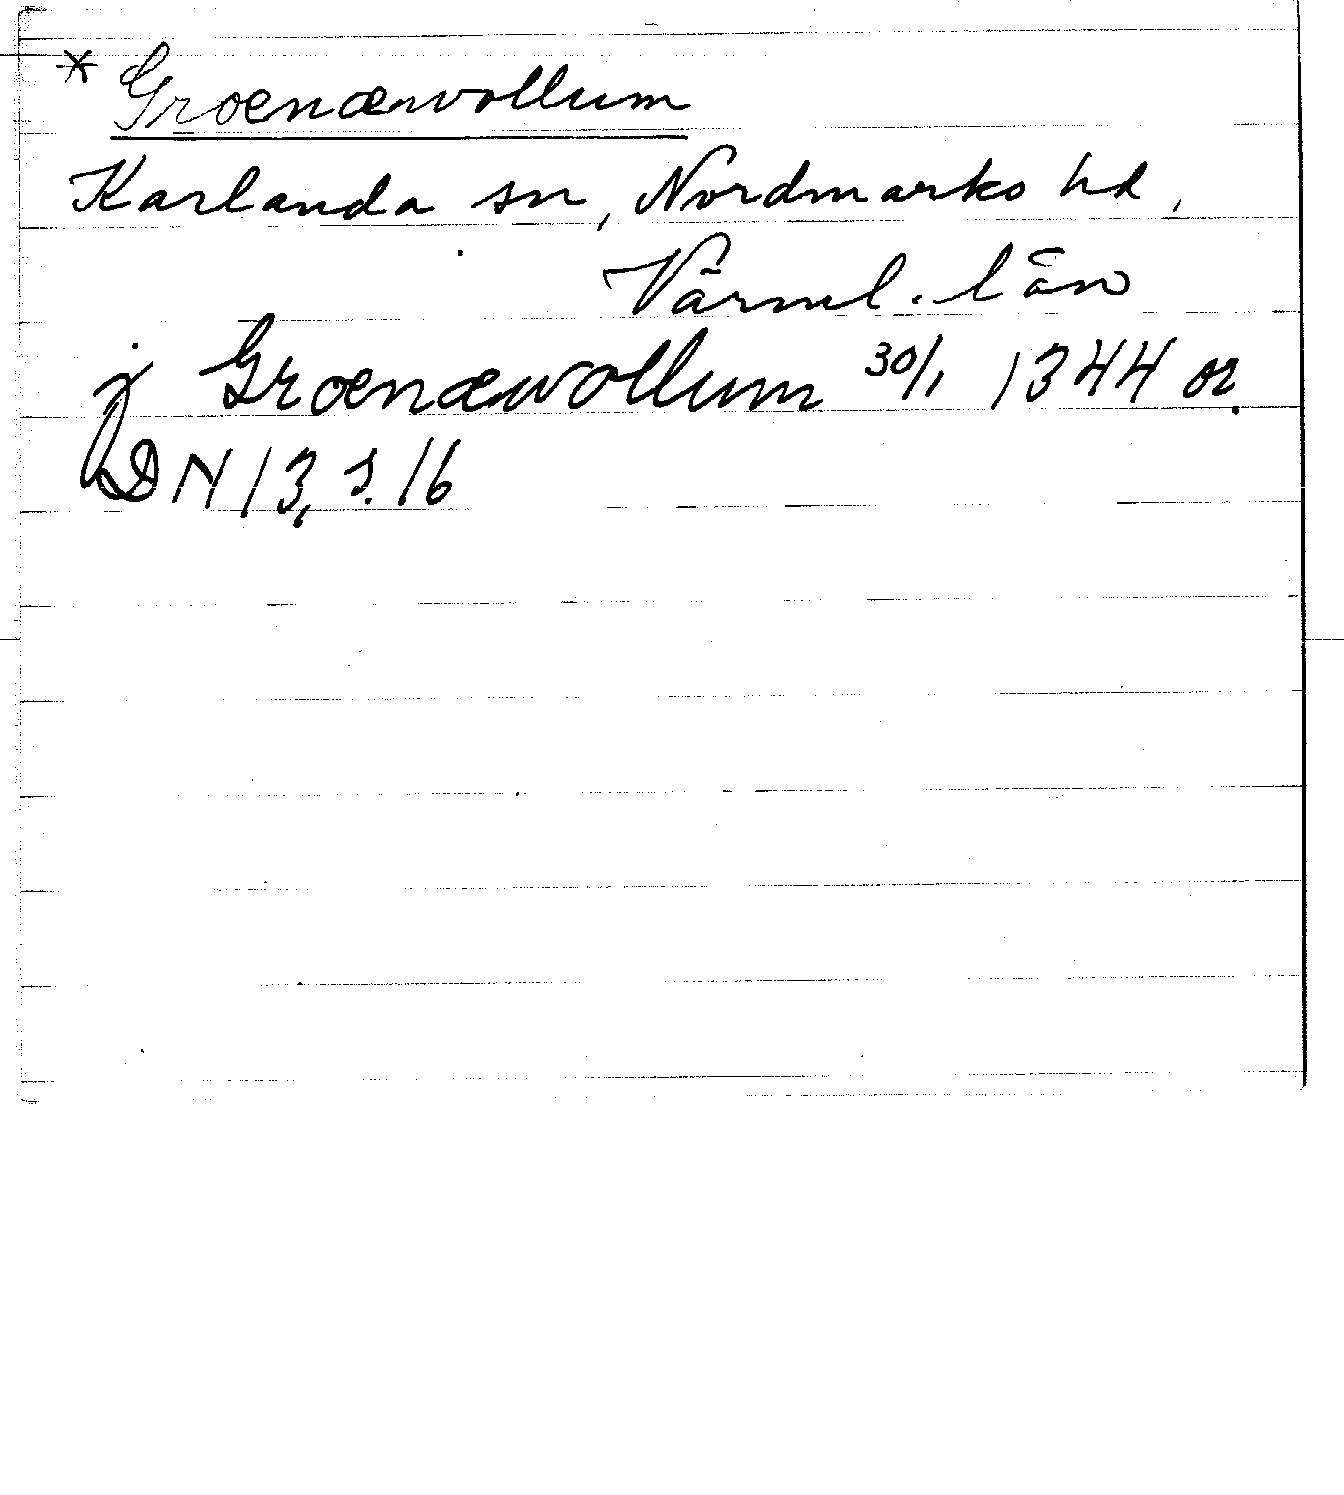 * Groenæwollum
Karlanda sn, Nordmarks hd,
Värml. län
j Groenæwollum 30/1 1344 or.
DN 13, s. 16